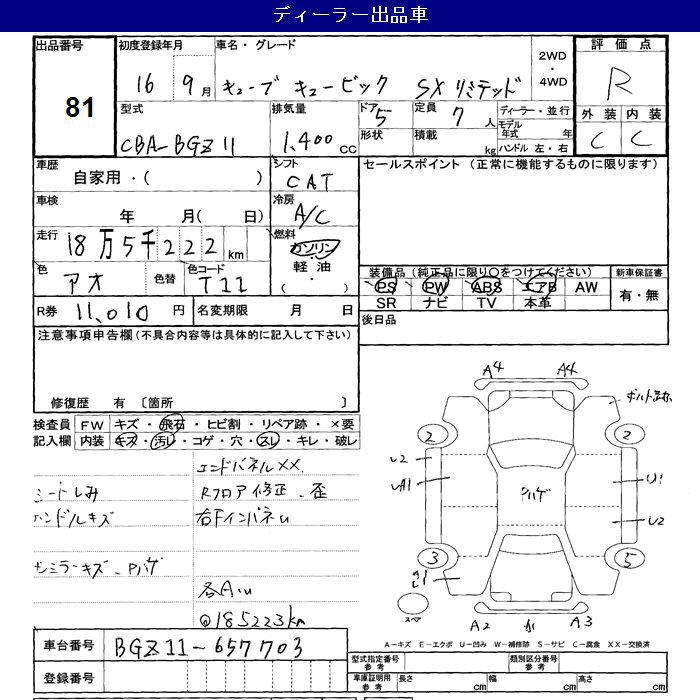 ディーラー出品車
出品番号
81
初度登録年月
16 9月
車名・グレード
キューブ キュービック SXリミテッド
2WD
・
4WD
評価点
R
外装 内装
C C
型式
CBA-BGZ11
排気量
1,400 cc
ドア 5
形状
定員 7 人
積載 kg
ディーラー・並行
モデル年式 年
ハンドル 左・右
車歴
自家用・( )
シフト
CAT
車検
年 月( 日)
冷房
A/C
走行
18万5千222km
燃料
ガソリン
・
軽油
・
( )
色
アオ
色替
色コード
T11
R券 11,010 円
名変期限 月 日
セールスポイント (正常に機能するものに限ります)
装備品 (純正品に限り○をつけてください)
PS PW ABS エアB AW
SR ナビ TV 本革
新車保証書
有・無
後日品
注意事項申告欄(不具合内容等は具体的に記入して下さい)
修復歴 有 〔箇所 〕
検査員記入欄
FW キズ・飛石・ヒビ割・リペア跡・×要
内装 キズ・汚レ・コゲ・穴・スレ・キレ・破レ
エンドパネルXX.
シートしみ
Rフロア修正、歪
ハンドルキズ
右FインパネU
ミラーキズ、Pハゲ
各A.U
@185223km
A4 A4
ボルト
2 2
U2
UA1
ハゲ
U1
U2
3 5
1
スペア
A2
A3
A-キズ E-エクボ U-凹み W-補修跡 S-サビ C-腐食 XX-交換済
車台番号 BGZ11-657703
登録番号
型式指定番号
参考
類別区分番号
参考
車庫証明用
参考
長さ cm
幅 cm
高さ cm